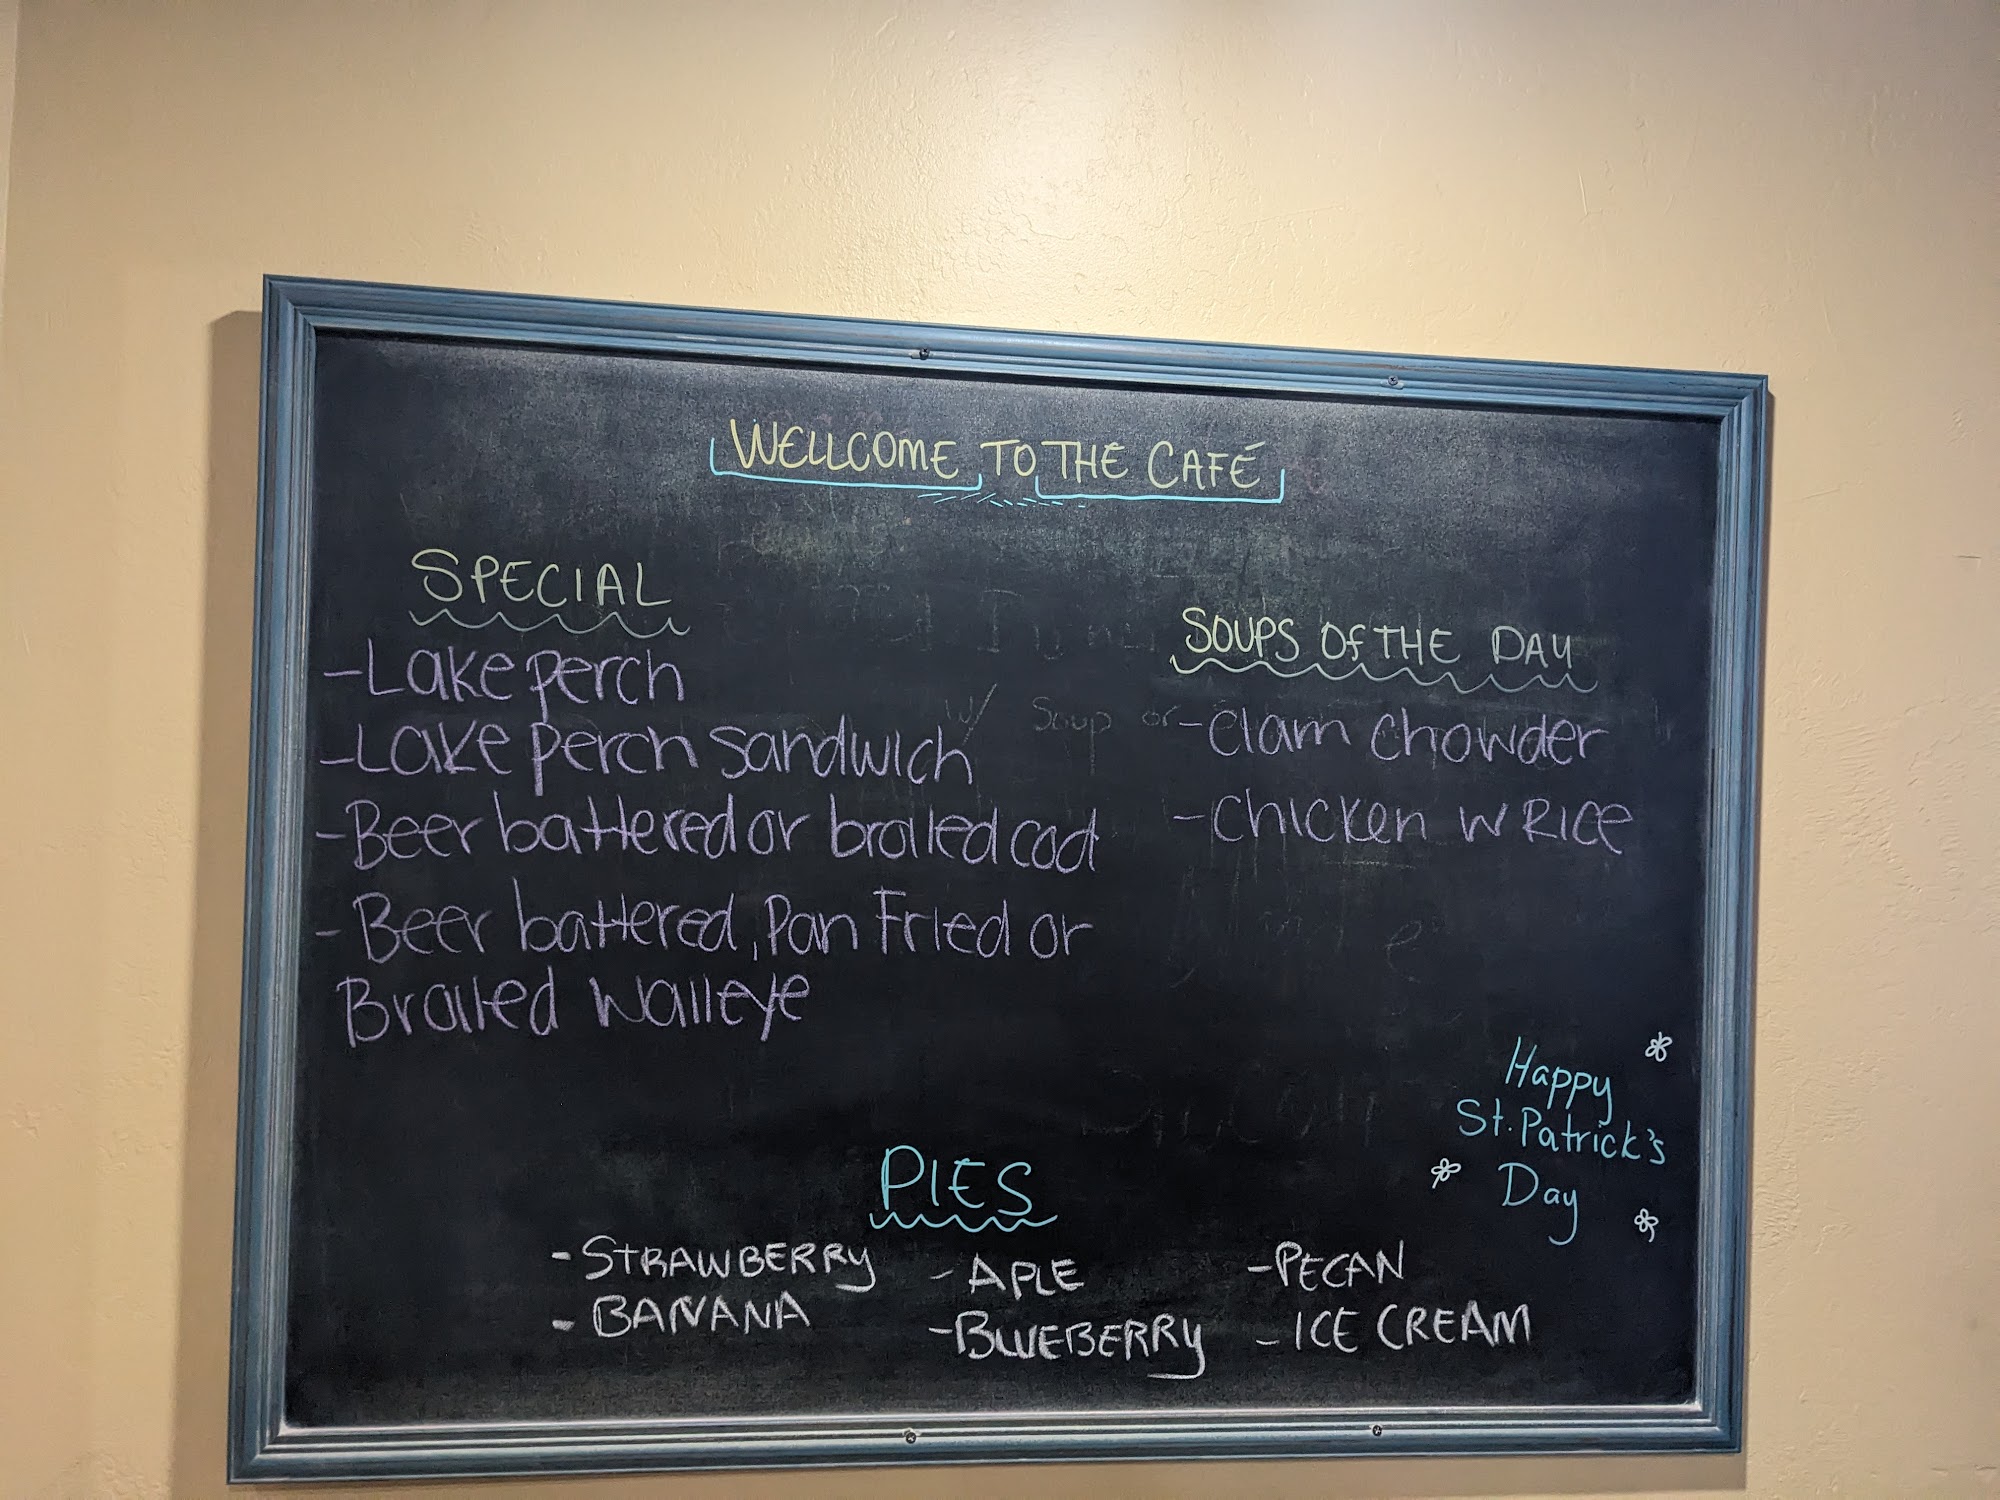 WELLCOME TO THE CAFÉ
SPECIAL
- Lake perch
- Lake perch sandwich
- Beer battered or brailed cod
- Beer battered, Pan Fried or
Brailed walleye
SOUPS OF THE DAY
- Clam chowder
- Chicken W RICE
w/ Soup or
Happy
St. Patrick's
Day
PIES
- STRAWBERRY - APLE - PECAN
- BANANA - BLUEBERRY - ICE CREAM